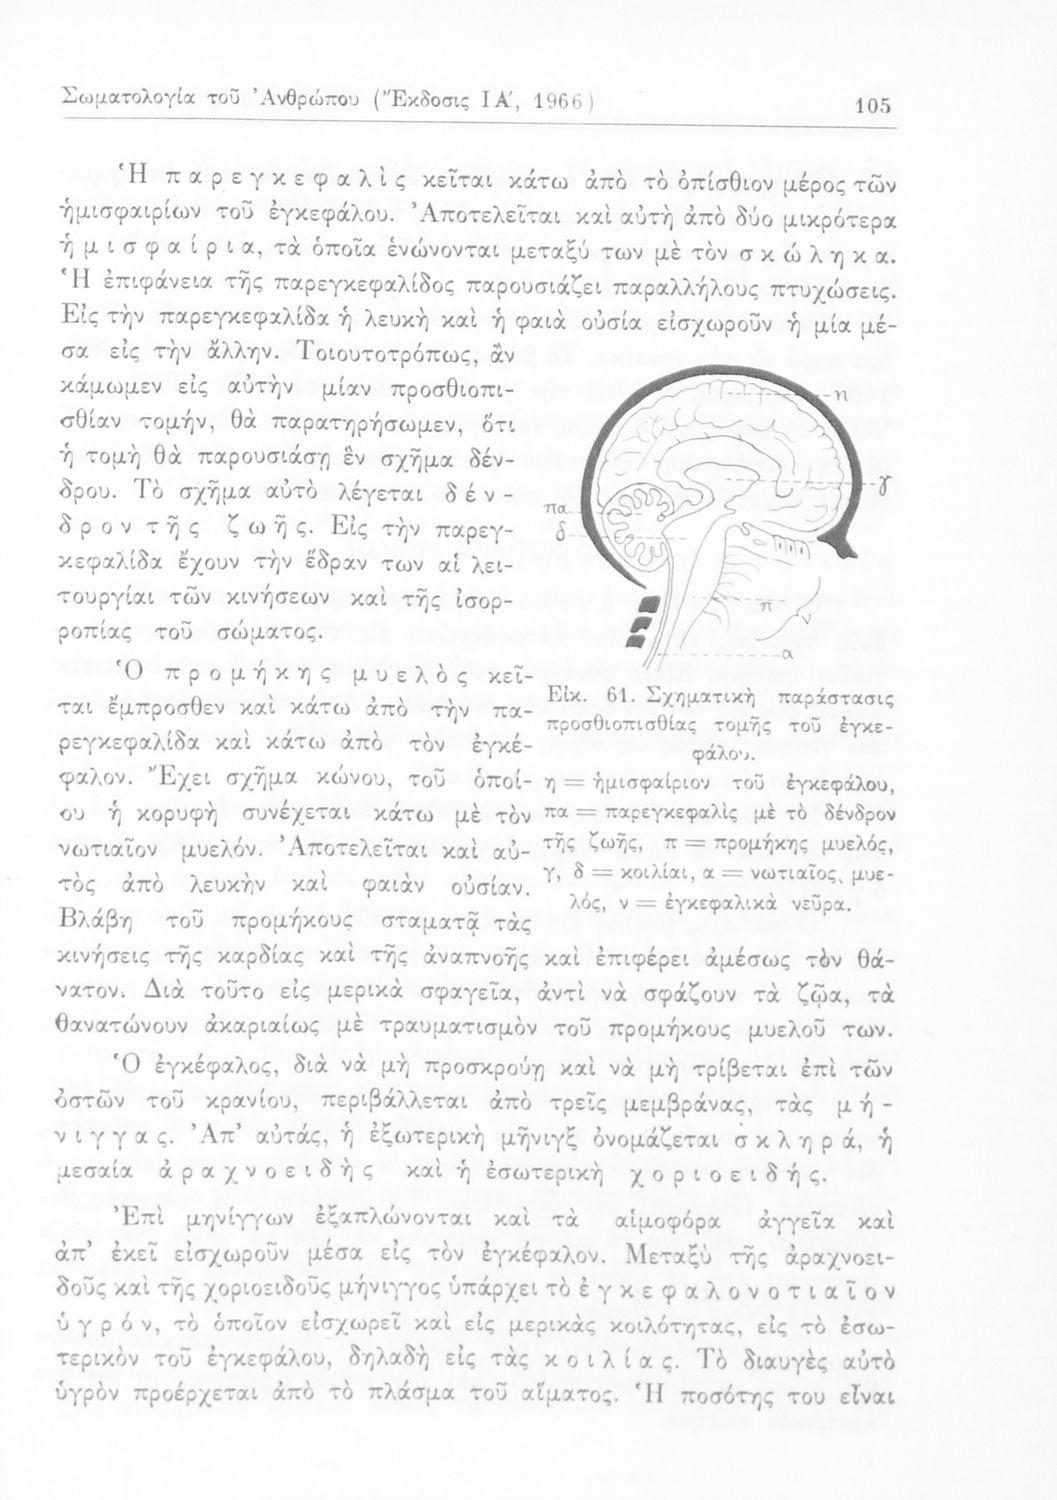 Σωματολογία τοῦ Ἀνθρώπου (Ἔκδοσις ΙΑ', 1966)
105
Ἡ παρεγκεφαλὶς κεῖται κάτω ἀπὸ τὸ ὀπίσθιον μέρος τῶν
ἡμισφαιρίων τοῦ ἐγκεφάλου. Ἀποτελεῖται καὶ αὐτὴ ἀπὸ δύο μικρότερα
ἡμισφαίρια, τὰ ὁποῖα ἑνώνονται μεταξύ των μὲ τὸν σκώληκα.
Ἡ ἐπιφάνεια τῆς παρεγκεφαλίδος παρουσιάζει παραλλήλους πτυχώσεις.
Εἰς τὴν παρεγκεφαλίδα ἡ λευκὴ καὶ ἡ φαιὰ οὐσία εἰσχωροῦν ἡ μία μέ-
σα εἰς τὴν ἄλλην. Τοιουτοτρόπως, ἂν
κάμωμεν εἰς αὐτὴν μίαν προσθιοπι-
σθίαν τομήν, θὰ παρατηρήσωμεν, ὅτι
ἡ τομὴ θὰ παρουσιάσῃ ἓν σχῆμα δέν-
δρου. Τὸ σχῆμα αὐτὸ λέγεται δέν-
δρον τῆς ζωῆς. Εἰς τὴν παρεγ-
κεφαλίδα ἔχουν τὴν ἕδραν των αἱ λει-
τουργίαι τῶν κινήσεων καὶ τῆς ἰσορ-
ροπίας τοῦ σώματος.
Ὁ προμήκης μυελὸς κεῖ-
ται ἔμπροσθεν καὶ κάτω ἀπὸ τὴν πα-
ρεγκεφαλίδα καὶ κάτω ἀπὸ τὸν ἐγκέ-
φαλον. Ἔχει σχῆμα κώνου, τοῦ ὁποί-
ου ἡ κορυφὴ συνέχεται κάτω μὲ τὸν
νωτιαῖον μυελόν. Ἀποτελεῖται καὶ αὐ-
τὸς ἀπὸ λευκὴν καὶ φαιὰν οὐσίαν.
Βλάβη τοῦ προμήκους σταματᾷ τὰς
η
γ
πα
δ
π
α
Εἰκ. 61. Σχηματικὴ παράστασις
προσθιοπισθίας τομῆς τοῦ ἐγκε-
φάλου.
η = ἡμισφαίριον τοῦ ἐγκεφάλου,
πα = παρεγκεφαλὶς μὲ τὸ δένδρον
τῆς ζωῆς, π = προμήκης μυελός,
γ, δ = κοιλίαι, α = νωτιαῖος μυε-
λός, ν = ἐγκεφαλικὰ νεῦρα.
κινήσεις τῆς καρδίας καὶ τῆς ἀναπνοῆς καὶ ἐπιφέρει ἀμέσως τὸν θά-
νατον. Διὰ τοῦτο εἰς μερικὰ σφαγεῖα, ἀντὶ νὰ σφάζουν τὰ ζῷα, τὰ
θανατώνουν ἀκαριαίως μὲ τραυματισμὸν τοῦ προμήκους μυελοῦ των.
Ὁ ἐγκέφαλος, διὰ νὰ μὴ προσκρούῃ καὶ νὰ μὴ τρίβεται ἐπὶ τῶν
ὀστῶν τοῦ κρανίου, περιβάλλεται ἀπὸ τρεῖς μεμβράνας, τὰς μή-
νιγγας. Ἀπ' αὐτάς, ἡ ἐξωτερικὴ μῆνιγξ ὀνομάζεται σκληρά, ἡ
μεσαία ἀραχνοειδὴς καὶ ἡ ἐσωτερικὴ χοριοειδής.
Ἐπὶ μηνίγγων ἐξαπλώνονται καὶ τὰ αἱμοφόρα ἀγγεῖα καὶ
ἀπ' ἐκεῖ εἰσχωροῦν μέσα εἰς τὸν ἐγκέφαλον. Μεταξὺ τῆς ἀραχνοει-
δοῦς καὶ τῆς χοριοειδοῦς μήνιγγος ὑπάρχει τὸ ἐγκεφαλονοτιαῖον
ὑγρόν, τὸ ὁποῖον εἰσχωρεῖ καὶ εἰς μερικὰς κοιλότητας, εἰς τὸ ἐσω-
τερικὸν τοῦ ἐγκεφάλου, δηλαδὴ εἰς τὰς κοιλίας. Τὸ διαυγὲς αὐτὸ
ὑγρὸν προέρχεται ἀπὸ τὸ πλάσμα τοῦ αἵματος. Ἡ ποσότης του εἶναι